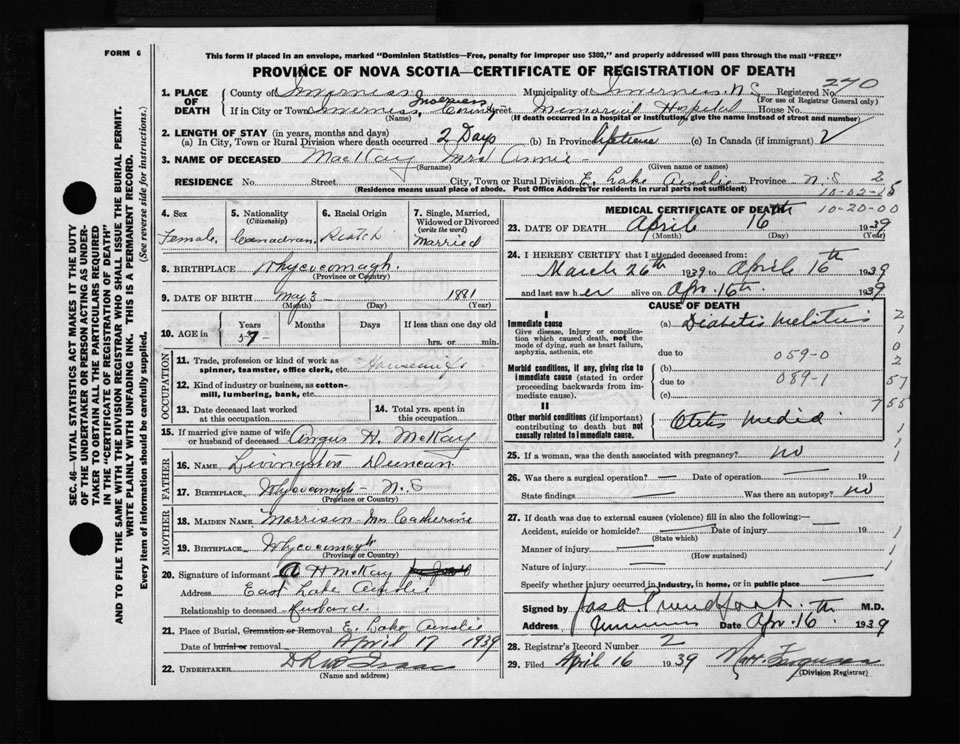 FORM 6
This form if placed in an envelope, marked "Dominion Statistics—Free, penalty for improper use $300," and properly addressed will pass through the mail "FREE"
PROVINCE OF NOVA SCOTIA—CERTIFICATE OF REGISTRATION OF DEATH
SEC. 46—VITAL STATISTICS ACT MAKES IT THE DUTY
OF THE UNDERTAKER OR PERSON ACTING AS UNDER-
TAKER TO OBTAIN ALL THE PARTICULARS REQUIRED
IN THE "CERTIFICATE OF REGISTRATION OF DEATH"
AND TO FILE THE SAME WITH THE DIVISION REGISTRAR WHO SHALL ISSUE THE BURIAL PERMIT.
WRITE PLAINLY WITH UNFADING INK. THIS IS A PERMANENT RECORD.
Every item of information should be carefully supplied. (See reverse side for instructions.)
1. PLACE OF DEATH County of Inverness Municipality of Inverness, N.S Registered No. 270
(For use of Registrar General only)
If in City or Town Inverness, Inverness County Street Memorial Hospital House No.
(Name) (If death occurred in a hospital or institution, give the name instead of street and number)
2. LENGTH OF STAY (in years, months and days)
(a) In City, Town or Rural Division where death occurred 2 Days (b) In Province lifetime (c) In Canada (if immigrant)
3. NAME OF DECEASED MacKay Mrs Annie
(Surname) (Given name or names)
RESIDENCE No. Street City, Town or Rural Division E. Lake Ainslie Province N.S 2
(Residence means usual place of abode. Post Office Address for residents in rural parts not sufficient)
10-02-15
4. Sex Female
5. Nationality (Citizenship) Canadian
6. Racial Origin Scotch
7. Single, Married, Widowed or Divorced (write the word) Married
8. BIRTHPLACE Whycocomagh.
(Province or Country)
9. DATE OF BIRTH May 3 1881
(Month) (Day) (Year)
10. AGE in Years 57 Months Days If less than one day old
hrs. or min.
OCCUPATION
11. Trade, profession or kind of work as spinner, teamster, office clerk, etc. Housewife
12. Kind of industry or business, as cotton-mill, lumbering, bank, etc.
13. Date deceased last worked at this occupation
14. Total yrs. spent in this occupation
15. If married give name of wife or husband of deceased Angus H. McKay
FATHER
16. NAME Livingston Duncan
17. BIRTHPLACE Whycocomagh - N.S
(Province or Country)
MOTHER
18. MAIDEN NAME Morrison - Mrs Catherine
19. BIRTHPLACE Whycocomagh
(Province or Country)
20. Signature of informant A H McKay
Address East Lake Ainslie
Relationship to deceased Husband.
21. Place of Burial, Cremation or Removal E. Lake Ainslie
Date of burial or removal April 17 1939
22. UNDERTAKER
(Name and address)
MEDICAL CERTIFICATE OF DEATH 10-20-00
23. DATE OF DEATH April 16th 1939
(Month) (Day) (Year)
24. I HEREBY CERTIFY that I attended deceased from:
March 26th 1939 to April 16th 1939
and last saw her alive on Apr. 16th. 1939
CAUSE OF DEATH
I
Immediate cause
Give disease, injury or complication which caused death, not the mode of dying, such as heart failure, asphyxia, asthenia, etc
(a) Diabetis Melitus
due to 059-0
Morbid conditions, if any, giving rise to immediate cause (stated in order proceeding backwards from immediate cause).
(b)
due to 089-1
(c)
II
Other morbid conditions (if important) contributing to death but not causally related to immediate cause.
Otitis Media
2
1
0
2
57
7 55
1
1
25. If a woman, was the death associated with pregnancy? no
26. Was there a surgical operation? — Date of operation — 19
State findings — Was there an autopsy? no
27. If death was due to external causes (violence) fill in also the following:—
Accident, suicide or homicide? Date of injury 19
(State which)
Manner of injury
(How sustained)
Nature of injury
Specify whether injury occurred in industry, in home, or in public place
1
1
1
Signed by M.D.
Address Inverness Date Apr. 16th 1939
28. Registrar's Record Number 2
29. Filed April 16 1939 Ferguson
(Division Registrar)